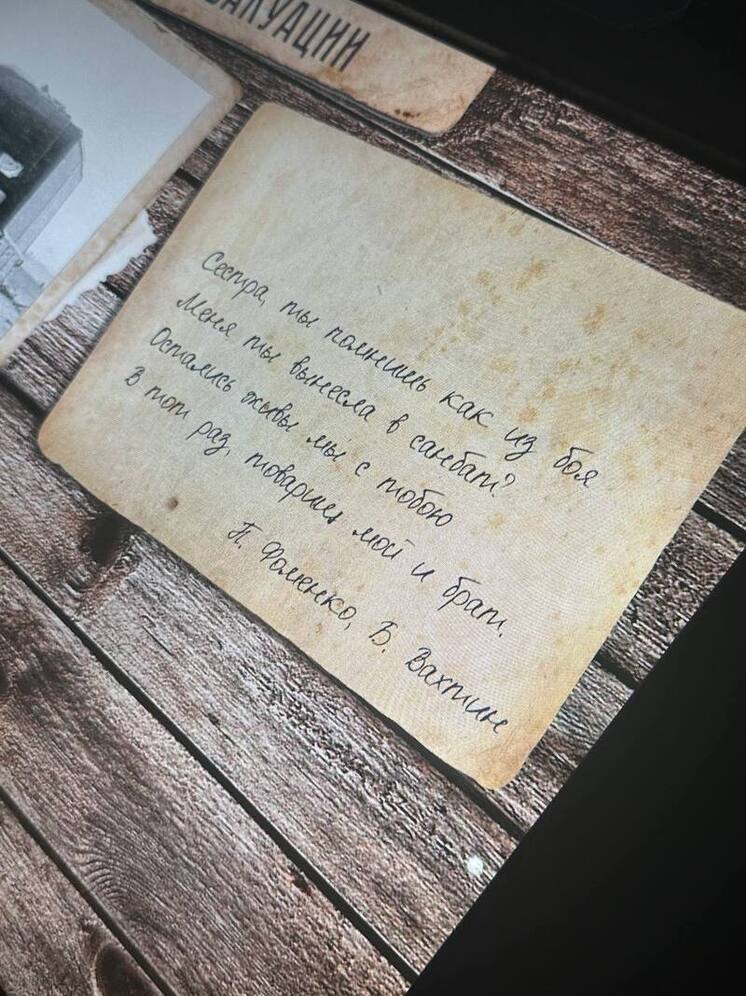 ВАКУАЦИИ
Сестра, ты помнишь как из боя
Меня ты вынесла в санбат?
Остались живы мы с тобою
В тот раз, товарищ мой и брат.
П. Фоменко, Б. Вахтин